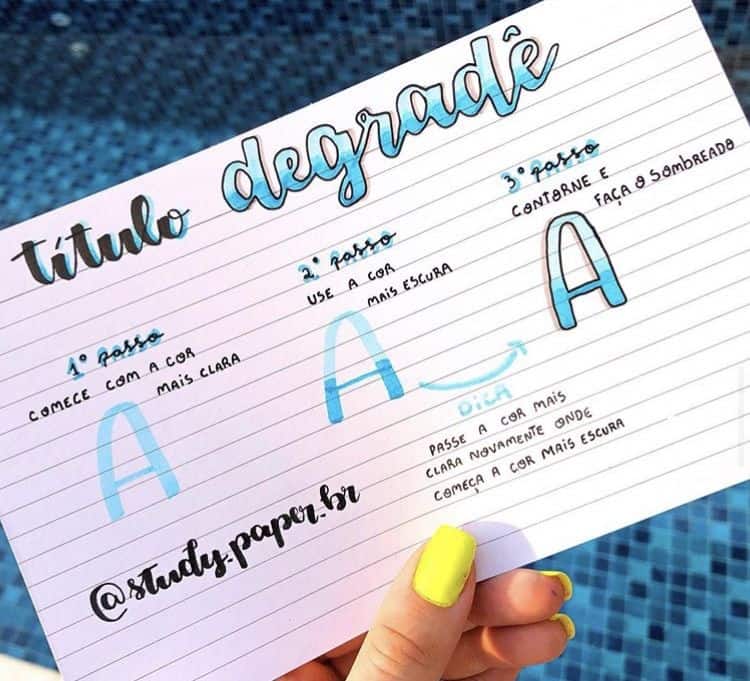 título degradê
1º passo
COMECE COM A COR
MAIS CLARA
A
2º passo
USE A COR
MAIS ESCURA
A
3º passo
CONTORNE E
FAÇA O SOMBREADO
A
DICA
PASSE A COR MAIS
CLARA NOVAMENTE ONDE
COMEÇA A COR MAIS ESCURA
@study.paper.br